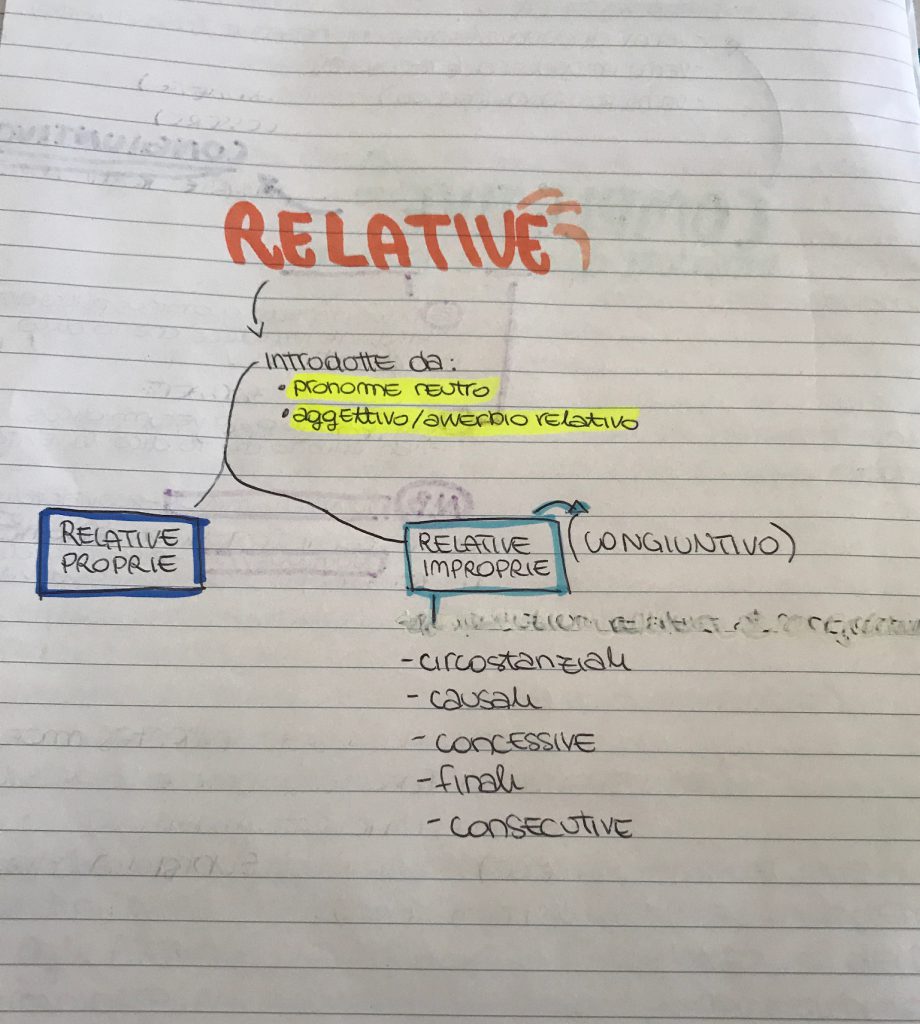 RELATIVE
introdotte da:
• pronome neutro
• aggettivo/avverbio relativo
RELATIVE
PROPRIE
RELATIVE
IMPROPRIE
(CONGIUNTIVO)
- circostanziali
- causali
- CONCESSIVE
- finali
- CONSECUTIVE